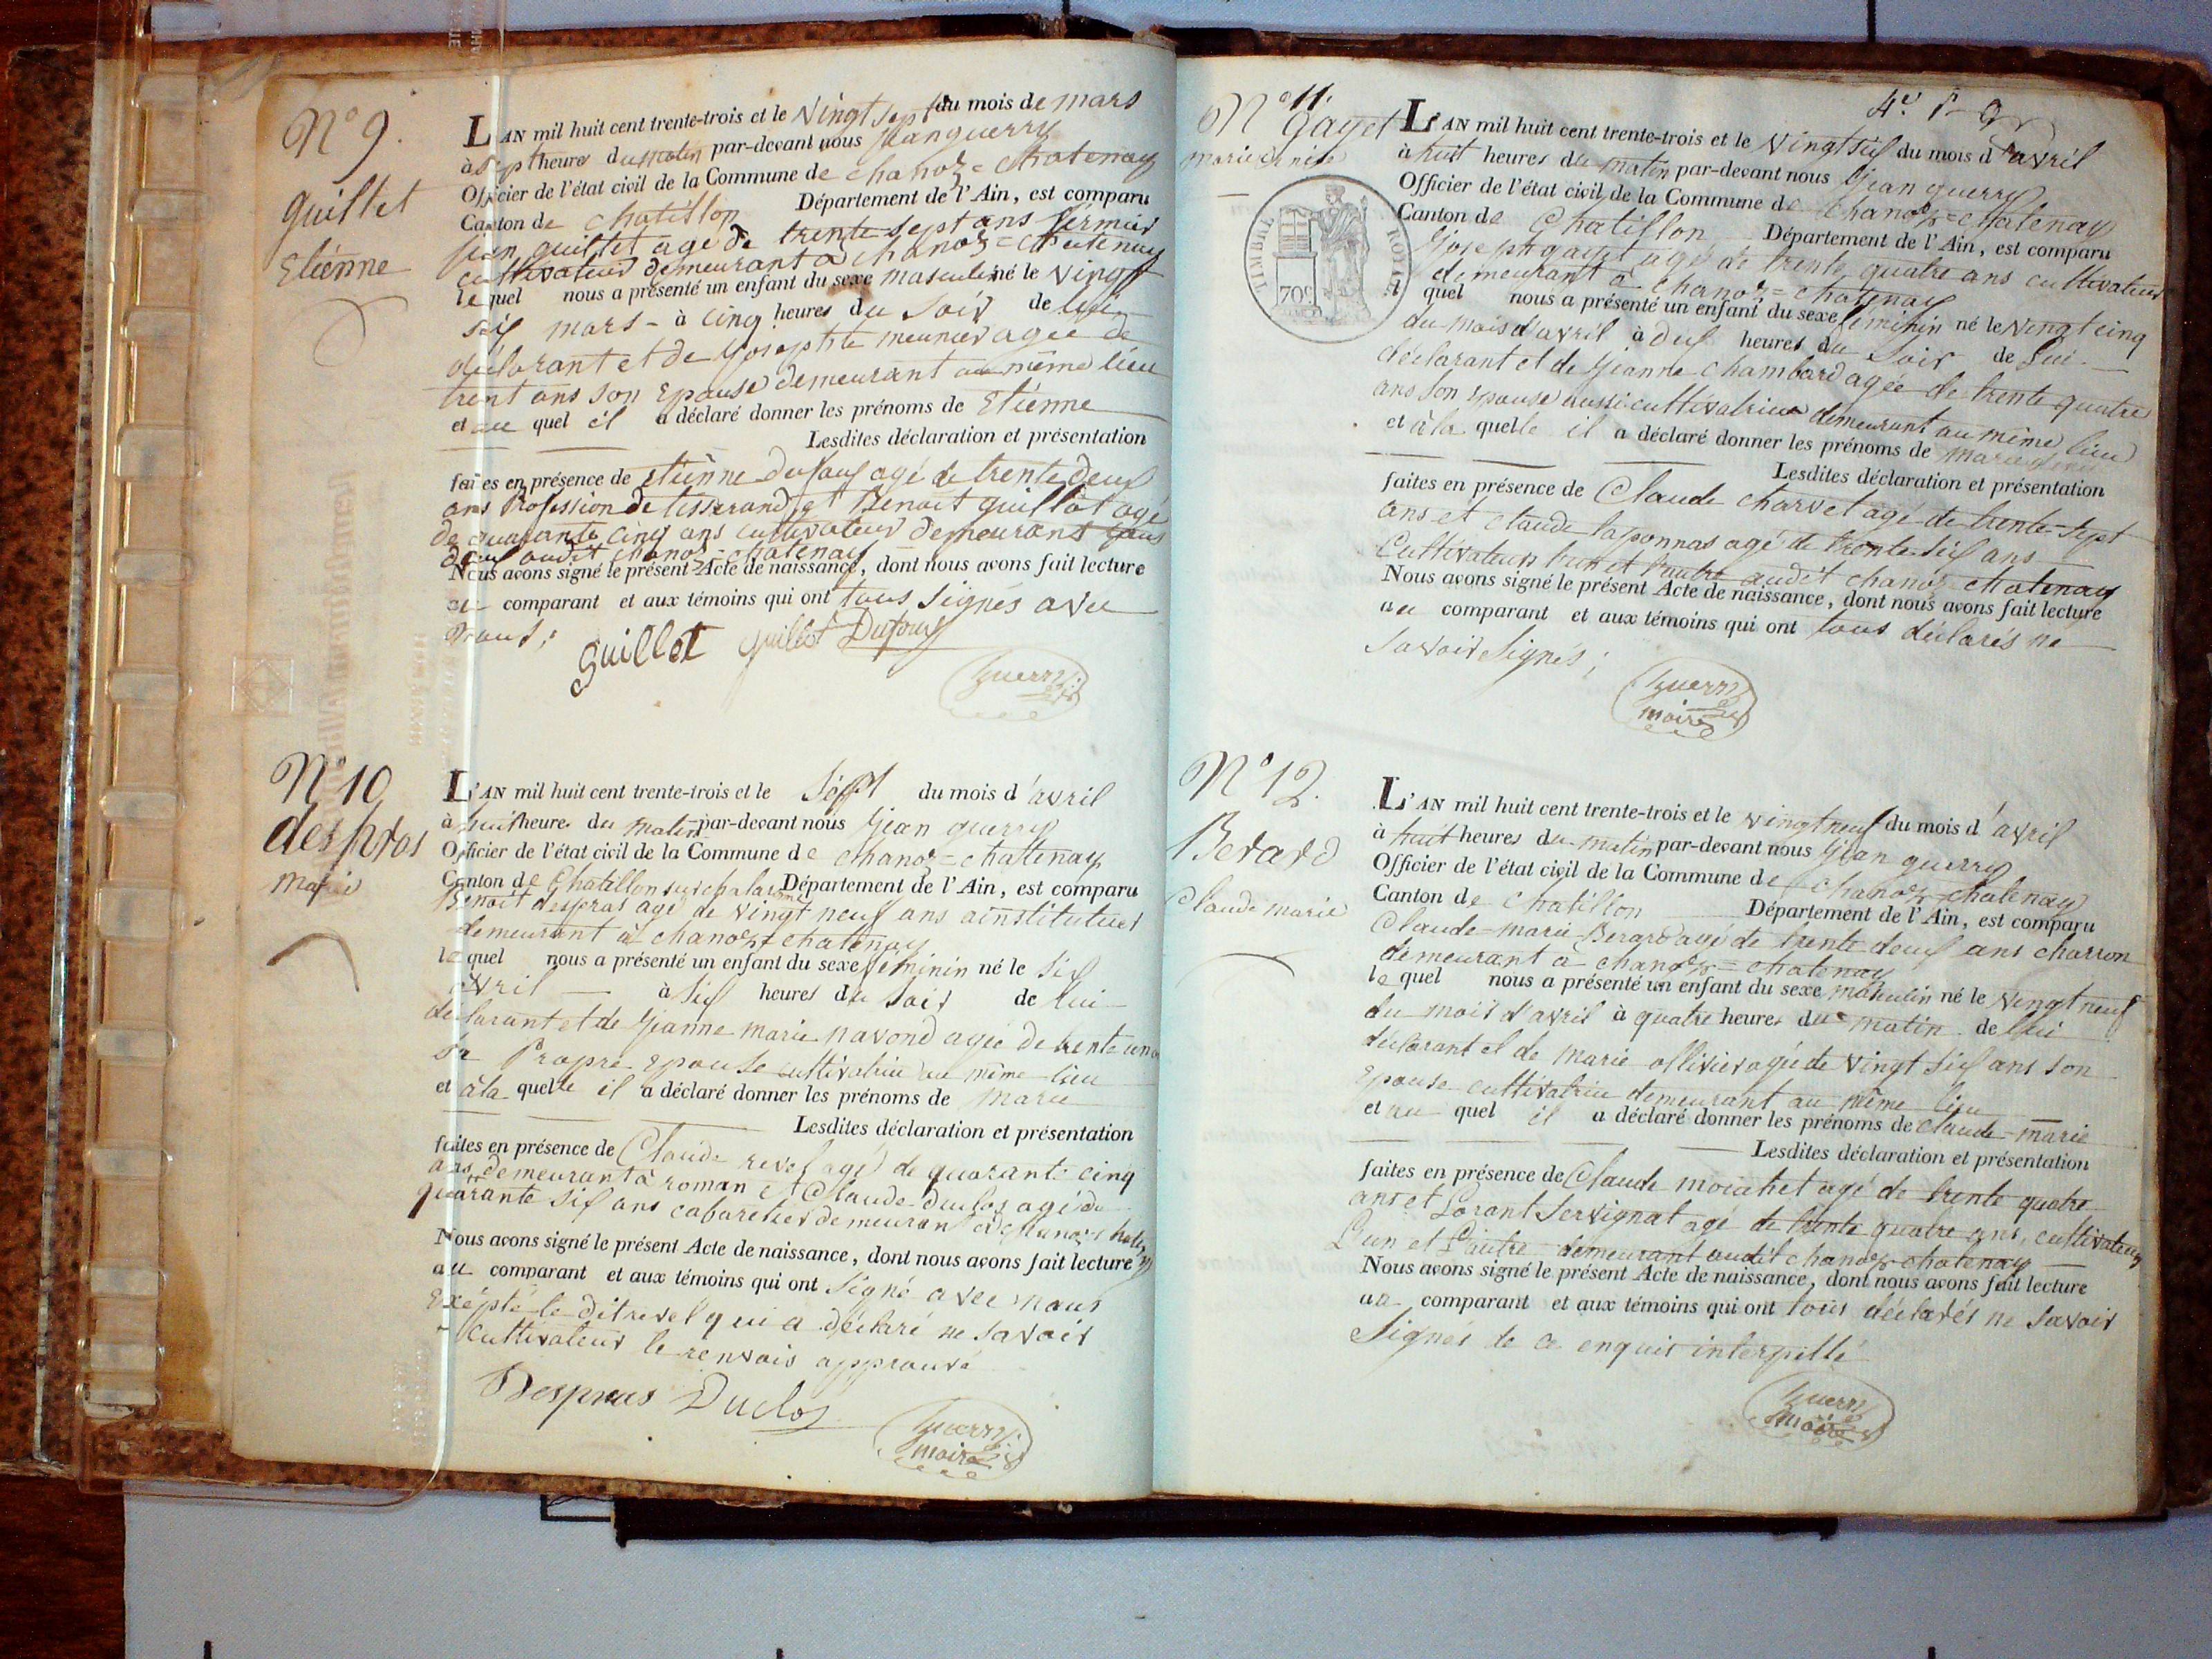 N° 9.
Guillet
Etiénne
L'AN mil huit cent trente-trois et le Vingt sept du mois de mars
à sept heures du matin par-devant nous Jean guerry
Officier de l'état civil de la Commune de chanoz = chatenay
Canton de chatillon Département de l'Ain, est comparu
jean guillet agé de trente sept ans fermier
cultivateur demeurant à chanoz = chatenay
lequel nous a présenté un enfant du sexe masculin né le vingt
six mars - à cinq heures du soir de lui
déclarant et de Josephte meunier agée de
trent ans son Epouse demeurant au même lieu
et au quel il a déclaré donner les prénoms de Etiénne
Lesdites déclaration et présentation
faites en présence de Etiénne dufour agé de trente deux
ans Profession de tisserand et Benoit guillot agé
de quarante cinq ans cultivateur demeurant tous
deux audit chanoz = chatenay
Nous avons signé le présent Acte de naissance, dont nous avons fait lecture
au comparant et aux témoins qui ont tous signés avec
nous ;
guillet guillot Dufour
Guerry
N° 10
despras
marie
L'AN mil huit cent trente-trois et le Sept du mois d'avril
à huit heures du matin par-devant nous Jean guerry
Officier de l'état civil de la Commune de chanoz = chattenay
Canton de Chatillon sur chalaronne Département de l'Ain, est comparu
Benoit despras agé de vingt neuf ans ainstituteur
demeurant à chanoz = chatenay
lequel nous a présenté un enfant du sexe féminin né le six
avril à six heures du soir de lui
declarant et de Jeanne marie navond agée de trente un
sa Propre Epouse cultivatrice au même lieu
et à la quelle il a déclaré donner les prénoms de marie
Lesdites déclaration et présentation
faites en présence de Claude revel agé de quarante cinq
ans demeurant à roman et Claude duclos agé de
quarante six ans cabaretier demeurant à chanoz chatenay
Nous avons signé le présent Acte de naissance, dont nous avons fait lecture
au comparant et aux témoins qui ont signé avec nous
Exépté le dit revel qui a déclaré ne savoir
cultivateur le renvois approuvé
Despras Duclos
Guerry
maire
4e f
N° 11.
Gayet
marie
TIMBRE ROYAL
70c
L'AN mil huit cent trente-trois et le Vingt six du mois d'avril
à huit heures du matin par-devant nous Jean guerry
Officier de l'état civil de la Commune de chanoz = chatenay
Canton de Chatillon Département de l'Ain, est comparu
Joseph gayet agé de trente quatre ans cultivateur
demeurant à chanoz = chatenay
lequel nous a présenté un enfant du sexe féminin né le vingt cinq
du mois d'avril à dix heures du soir de lui
déclarant et de Jeanne chambard agée de trente quatre
ans son Epouse aussi cultivatrice demeurant au même lieu
et à la quelle il a déclaré donner les prénoms de marie
Lesdites déclaration et présentation
faites en présence de Claude charvet agé de trente-sept
ans et claude laponnas agé de trente-six ans
Cultivateurs l'un et l'autre audit chanoz chatenay
Nous avons signé le présent Acte de naissance, dont nous avons fait lecture
au comparant et aux témoins qui ont tous déclarés ne
savoir signés ;
Guerry
maire
N° 12.
Berard
Claude marie
L'AN mil huit cent trente-trois et le vingt neuf du mois d'avril
à huit heures du matin par-devant nous Jean guerry
Officier de l'état civil de la Commune de chanoz = chatenay
Canton de chatillon Département de l'Ain, est comparu
Claude = marie Berard agé de trente deux ans charron
demeurant à chanoz = chatenay
lequel nous a présenté un enfant du sexe masculin né le vingt neuf
du mois d'avril à quatre heures du matin de lui
déclarant et de marie ollivier agée de vingt six ans son
epouse cultivatrice demeurant au même lieu
et au quel il a déclaré donner les prénoms de claude = marie
Lesdites déclaration et présentation
faites en présence de Claude agé de trente quatre
ans et Lorant Servignat agé de trente quatre ans, cultivateurs
L'un et L'autre demeurant audit chanoz chatenay
Nous avons signé le présent Acte de naissance, dont nous avons fait lecture
au comparant et aux témoins qui ont tous déclarés ne savoir
Signés de ce enquis interpellé
Guerry
maire